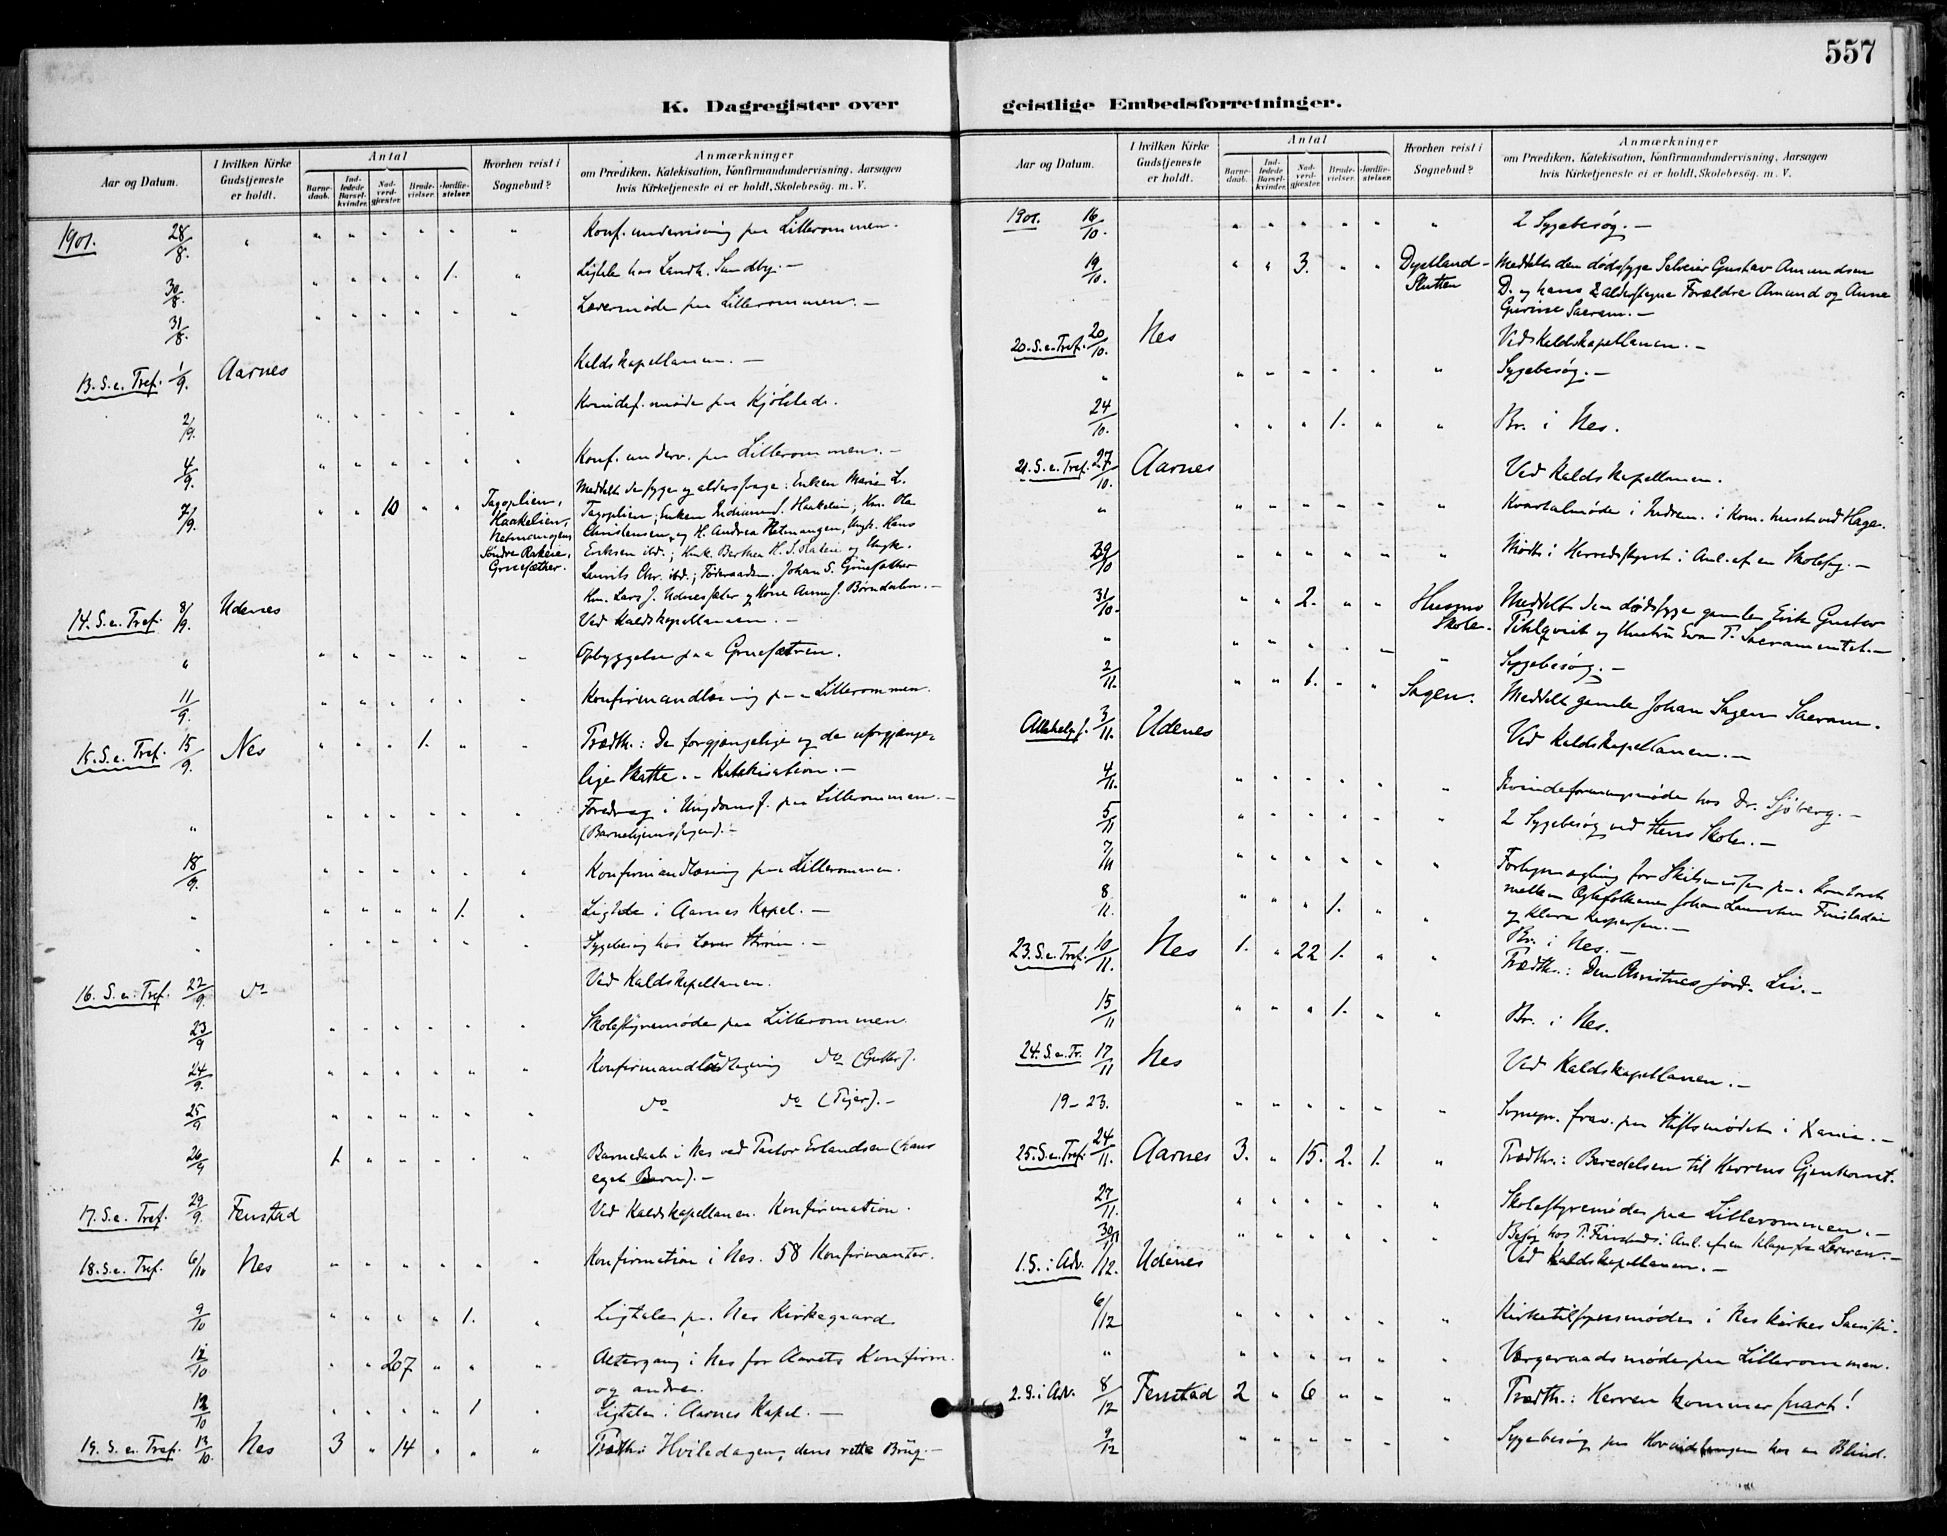 557
K. Dagregister over
geistlige Embedsforretninger.
Aar og Datum.
I hvilken Kirke Gudstjeneste er holdt.
Antal
Barnedaab.
Indledede Barselkvinder.
Nadverdgjæster.
Brudevielser.
Jordfæstelser.
Hvorhen reist i Sognebud?
Anmærkninger
om Prædiken, Katekisation, Konfirmandundervisning, Aarsagen
hvis Kirketjeneste ei er holdt, Skolebesøg. m. V.
1901. 28/8. " " " " " " " Konf. undervisning paa Lillerommen.
30/8. " " " " 1. " Ligtale hos Landh. Sundby. —
31/8. " " " " " " Lærermøde paa Lillerommen. —
13. S. e. Tref. 1/9. Aarnes Kaldskapellanen. —
2/9. " " " " " " Kvindef. møde paa Kjølstad.
4/9. " " " " " " Konf. underv. paa Lillerommen. —
7/9. " " 10 " " Tagoplien, Haakelien, Søndre Grusæther. Meddelt de syge og alderssvage: Enken Marie L.
Tagoplien; Enken S. Haakelien; Km. Ola
Christensen og H. Andrea Ungk. Hans
Eriksen ibd.; Berthea H. og Ungk.
Laurits Chr. ibd.; Føderaadsm. Johan S. Gruesæther
Km. Lars J. og Kone Anne J. —
14. S. e. Tref. 8/9. Udenes Ved Kaldskapellanen. —
" " " " " " " Opbyggelse paa Gruesætren.
11/9. " " " " " " Konfirmandlæsning paa Lillerommen.
15. S. e. Tref. 15/9. Nes " " " 1. " " Prædth.: De forgjængelige og de uforgjænge-
lige Skatte. - Katekisation. —
" " " " " " " Foredrag i Ungdomsf. paa Lillerommen. —
(Barnehjemssagen). —
18/9. " " " " " " Konfirmandlæsning paa Lillerommen.
" " " " " 1. " Ligtale i Aarnes Kapel. —
" " " " " " " Sygebesøg hos Lærer Strøm. —
16. S. e. Tref. 22/9. do Ved Kaldskapellanen.
23/9 " " " " " " Skolestyremøde paa Lillerommen.
24/9. " " " " " " do (Gutter).
25/9 " " " " " " do do (Piger). —
26/9 1. " " " " " Barnedaab i Nes ved Pastor Erlandsen (hans
eget Barn). —
17. S. e. Tref. 29/9. Fenstad Ved Kaldskapellanen. Konfirmation.
18. S. e. Tref. 6/10 Nes " " " " " " Konfirmation i Nes. 58 Konfirmanter.
9/10 " " " " 1. " Ligtale paa Nes Kirkegaard
12/10 " " 207 " " " Altergang i Nes for Aarets Konfirm.
og andre.
12/10 " " " " 1 " Ligtale i Aarnes Kapel. —
19. S. e. Tref. 13/10. Nes 3 " 14 " " " Prædth: Hviledagen, dens rette Brug. —
Aar og Datum.
I hvilken Kirke Gudstjeneste er holdt.
Antal
Barnedaab.
Indledede Barselkvinder.
Nadverdgjæster.
Brudevielser.
Jordfæstelser.
Hvorhen reist i Sognebud?
Anmærkninger
om Prædiken, Katekisation, Konfirmandundervisning, Aarsagen
hvis Kirketjeneste ei er holdt, Skolebesøg. m. V.
1901. 16/10. " " " " " " 2 Sygebesøg. —
19/10. " " 3. " " Dystland-Slutten Meddelt den dødssyge Selveier Gustav Amundsen
D. og hans 2 alderstegne Forældre Amund og Anne
Gurine Sacram. —
20. S. e. Tref. 20/10. Nes Ved Kaldskapellanen. —
" " " " " " " Sygebesøg. —
24/10. " " " 1. " " Br. i Nes.
21. S. e. Tref. 27/10. Aarnes Ved Kaldskapellanen.
" " " " " " " Kvartalmøde i Indrem. i Kom. huset ved Haga.
29/10 " " " " " " Møde i Herredsstyret i Anl. af en Skolesag. —
31/10. " " 2. " " Husmo Skole. Meddelt den dødssyge gamle Erik Gustav
Pihlqvist og Hustru Eva P. Sacramentet. —
" " " " " " " Sygebesøg. —
2/11. " " 1. " " Sagen. Meddelt gamle Johan Sagen Sacram.
Allehelg.f. 3/11. Udenes Ved Kaldskapellanen. —
4/11. " " " " " " Kvindeforeningsmøde hos Dr. Sjöberg. —
5/11 " " " " " " 2 Sygebesøg ved Stens Skole. —
7/11 " " " " " " Forligsmægling for Skilsmisse paa Kontoret
mellem Ægtefolkene Johan
og Klara Kaspersen. —
8/11. " " " 1. " " Br. i Nes. —
23. S. e. Tref. 10/11. Nes 1. " 22 1. " " Prædth.: Den Christnes jord. Liv. —
15/11 " " " 1. " " Br. i Nes.
24. S. e. Tr. 17/11 Nes Ved Kaldskapellanen. —
19 - 23. " " " " " " Sognepr. frav. paa Stiftsmødet i Xania. —
25. S. e. Tref. 24/11. Aarnes 3. " 15. 2. 1. " Prædth.: Beredelsen til Herrens Gjenkomst.
27/11. " " " " " " Skolestyremøde paa Lillerommen. —
30/11 " " " " " " Besøg hos P. i Anl. af en Klage fra Læreren. —
1. S. i Adv. 1/12. Udenes Ved Kaldskapellanen. —
6/12 " " " " " " Kirketilsynsmøde i Nes Kirkes Sacristi.
" " " " " " " Værgeraadsmøde paa Lillerommen.
2. S. i Adv. 8/12 Fenstad 2 " 6 " " " Prædth.: Herren kommer snart!
9/12 " " " " " " Sygebesøg paa hos en Blind.